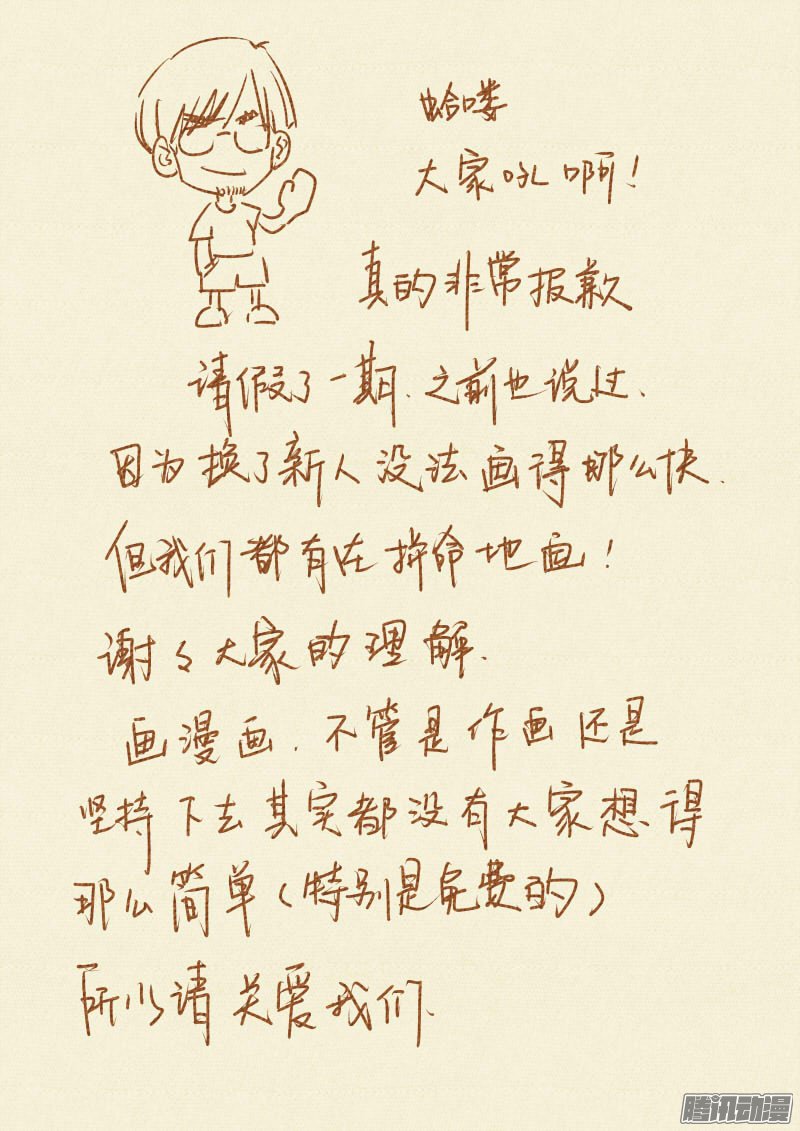 蛤喽
大家吼啊!
真的非常报歉
请假了一期.之前也说过.
因为换了新人没法画得那么快.
但我们都有在拚命地画!
谢々大家的理解.
画漫画.不管是作画还是
坚持下去其实都没有大家想得
那么简单(特别是免费的)
所以请关爱我们.
腾讯动漫